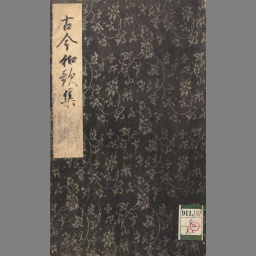 古今和歌集
911.